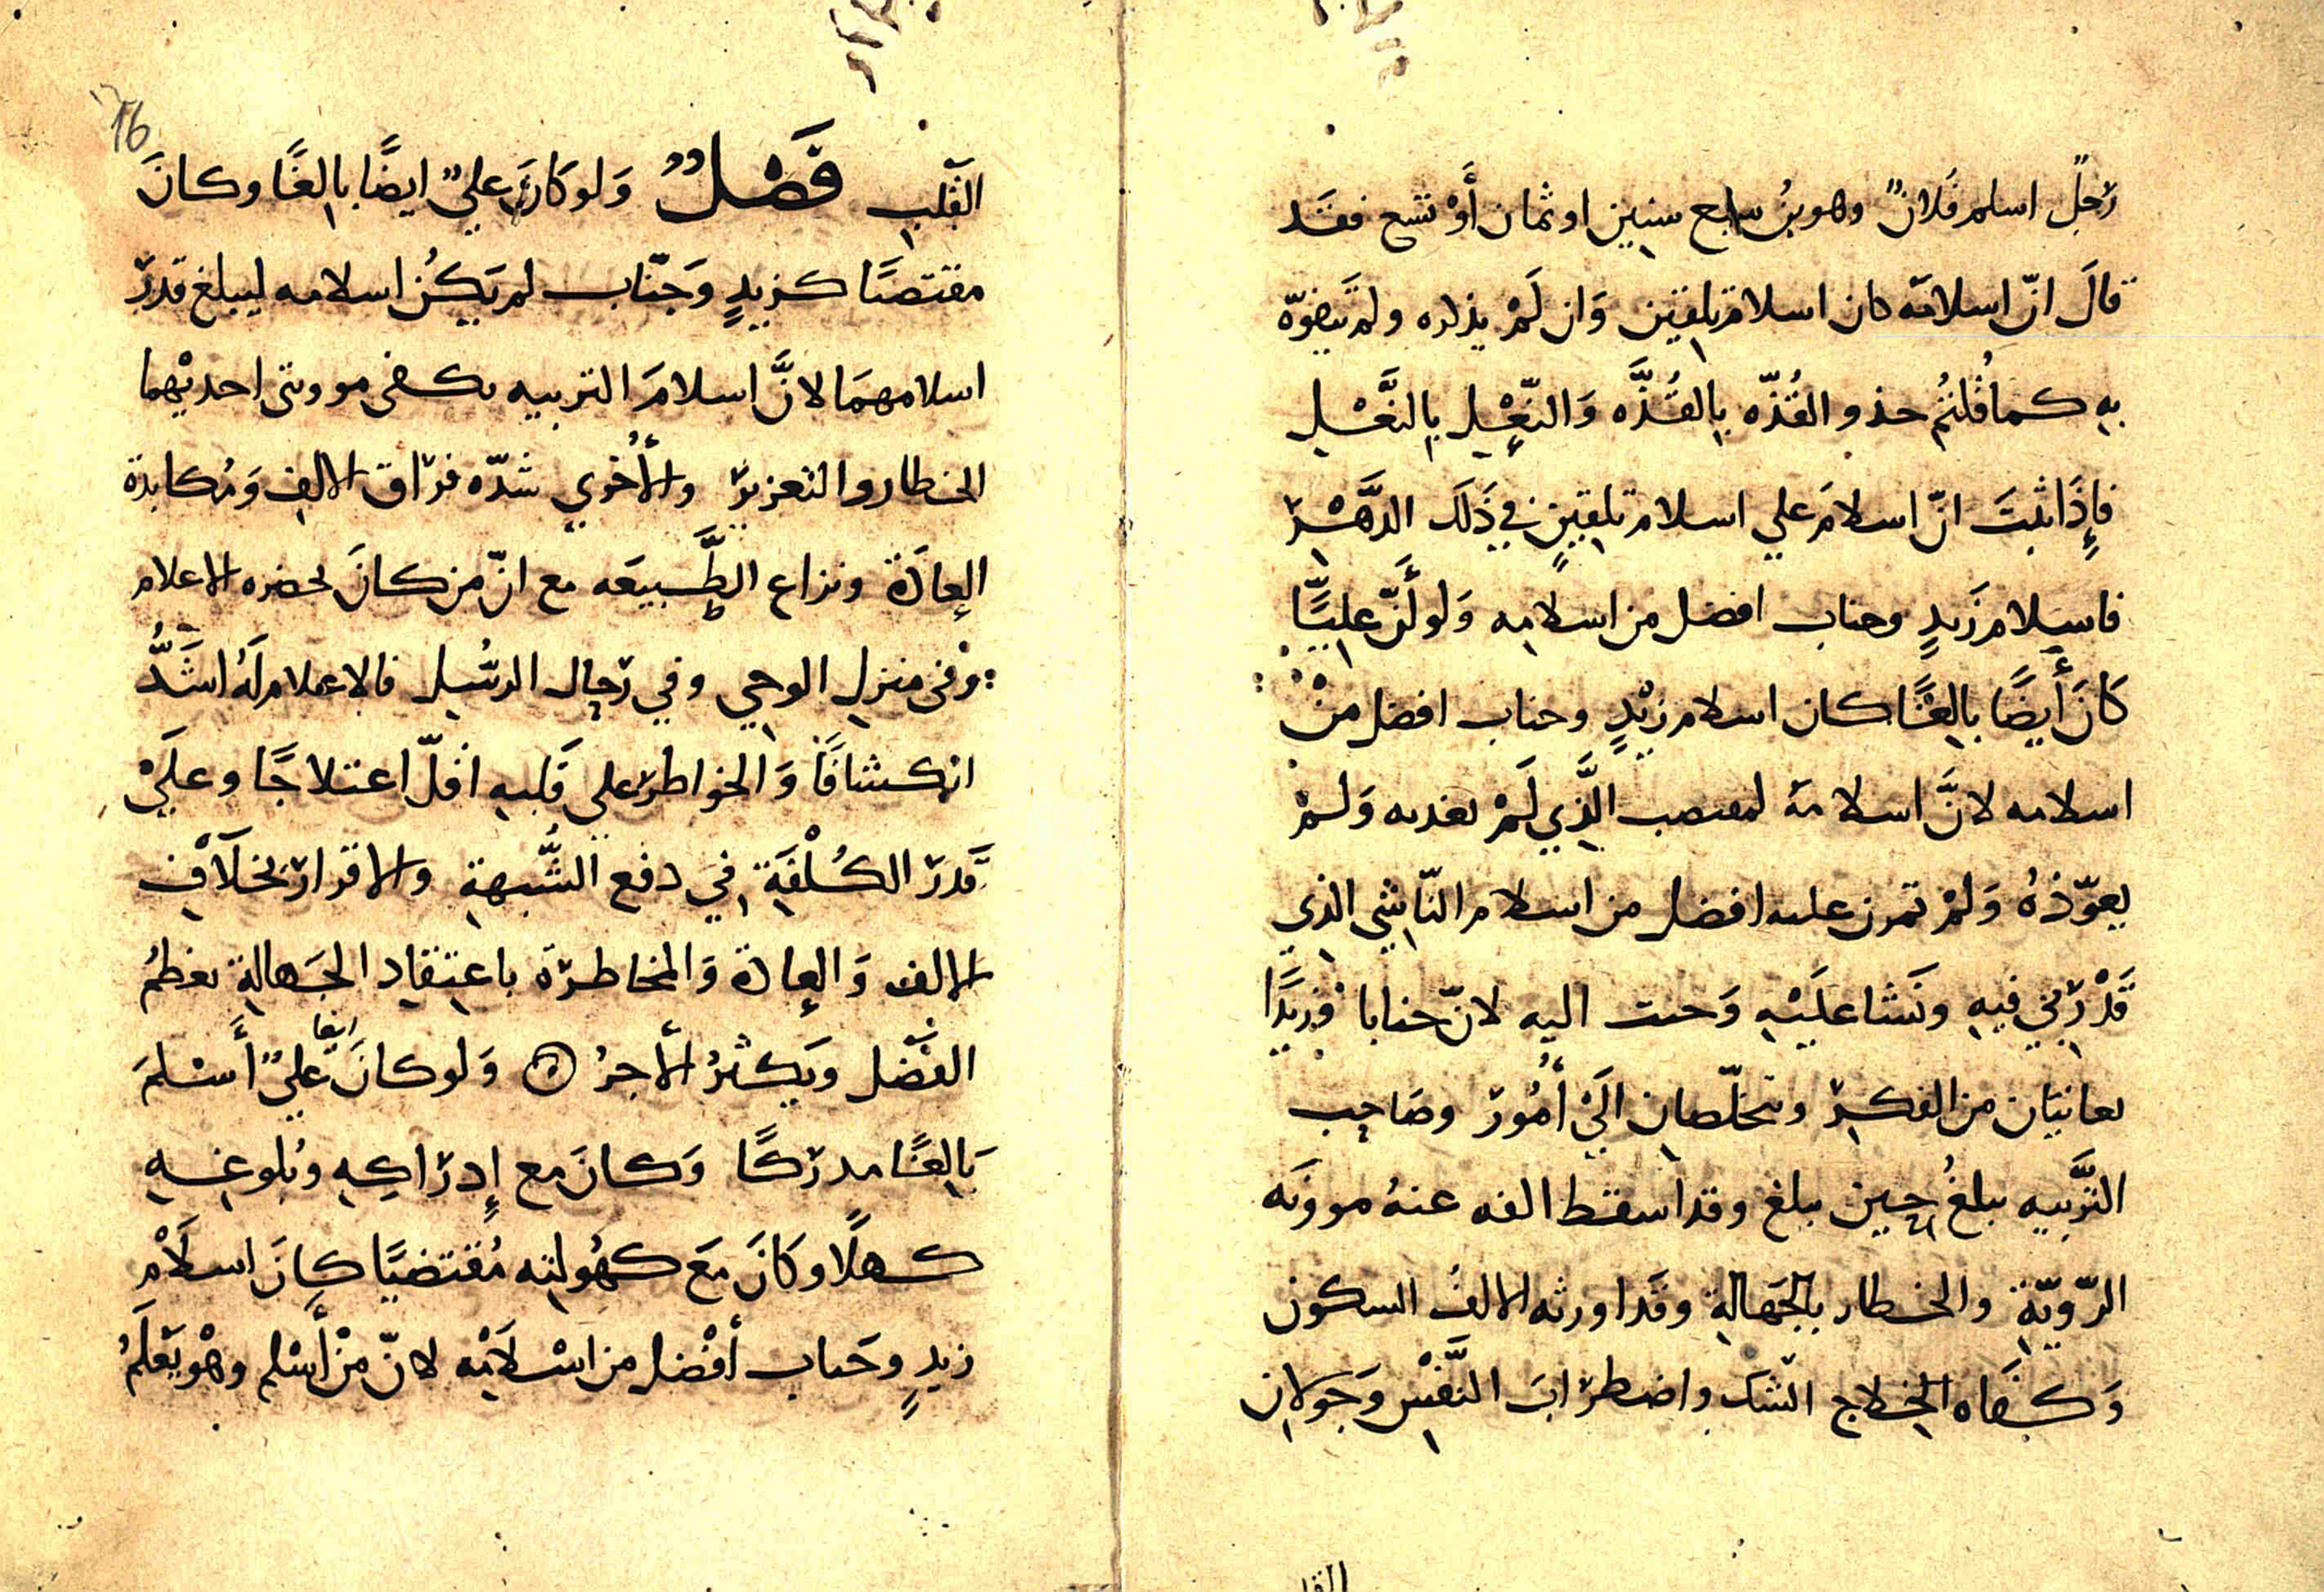 رَجلٌ اسلم فَلانٌ وهو بنُ سابع سنين او ثمان أَوْ تسع فقَد
قالَ انّ اسلامَه كان اسلام تلقين وَان لَمْ يذاره ولم يفوّه
به كما قُلتُم حذو القُذّه بالقُذَّه وَالنّعْل بالنَّعْل
فإِذَا ثبتَ انّ اسلامَ علي اسلام تلقينٍ في ذَلَك الدَّهْر
فاسلام زَيدٍ وجناب افضل من اسلامه وَلو أَنّ عليًّا
كَانَ أَيضًا بالغًا كان اسلام زيْدٍ وجناب افضل منْ
اسلامه لانَّ اسلامَه لمقتصب الَّذِي لَمْ يغدىه وَلمْ
يعوّذهُ وَلمْ تمرن عليه افضل من اسلام النّاشي الذي
قَدْ رُبّي فيهِ ونَشَا علَيْهِ وَحبب اليه لانّ خبابا وَزيدًا
يعانيَان من الفكر ويتخلّصان الَيْ أُمُور وصَاحِب
التَّربيه يبلغُ حين يبلغ وقد اسقط الفه عنهُ موونَه
الرّوِيّةِ والخطار بالجَهالةِ وقَد اورثه الالفُ السكون
وَكفَاه اختلاج الشك واضطرابَ النَّفْس وَجَولان
القلب فَصْلٌ وَلو كَانَ عليٌ ايضًا بالغًا وكانَ
مقتصًا كزيدٍ وَجَنّاب لم يَكُن اسلامه ليبلغ قدرَ
اسلامهمَا لانَّ اسلامَ التربيه يكفى موونتى احديْهما
الخطار والتعزير والأُخري شدّه فرَاق الالف وَمُكابدة
العادَة ونزاع الطَّبيعَه مع انّ من كانَ بحضره الاعلام
وفى منزل الوحِي وفي رَحال الرسُل فالاعلام لَهُ اشَدُّ
انكشافًا وَالخواطر علي قَلبهِ اقلّ اعتلاجًا وعلَيْ
قَدرَ الكُلْفَةِ فيَ دفع الشُّبهةِ والاقرار بخلَافِ
الالف وَالعادة وَالمخاطرَة باعتقاد الجَهالةِ يعظمُ
الفَضل ويَكثرُ الأجرُ وَلو كانَ ايضا عليٌ أَسْلمَ
بَالغًا مدرَكًا وَكانَ مع إِدرَاكِهِ وبُلوغهِ
كهلًا وكَانَ مَعَ كهُولته مُقتضيًا كانَ اسلَامْ
زيدٍ وحَباب أفْضل من اسْلَامْه لانّ منْ أَسْلم وهْو يَعْلَمُ
16